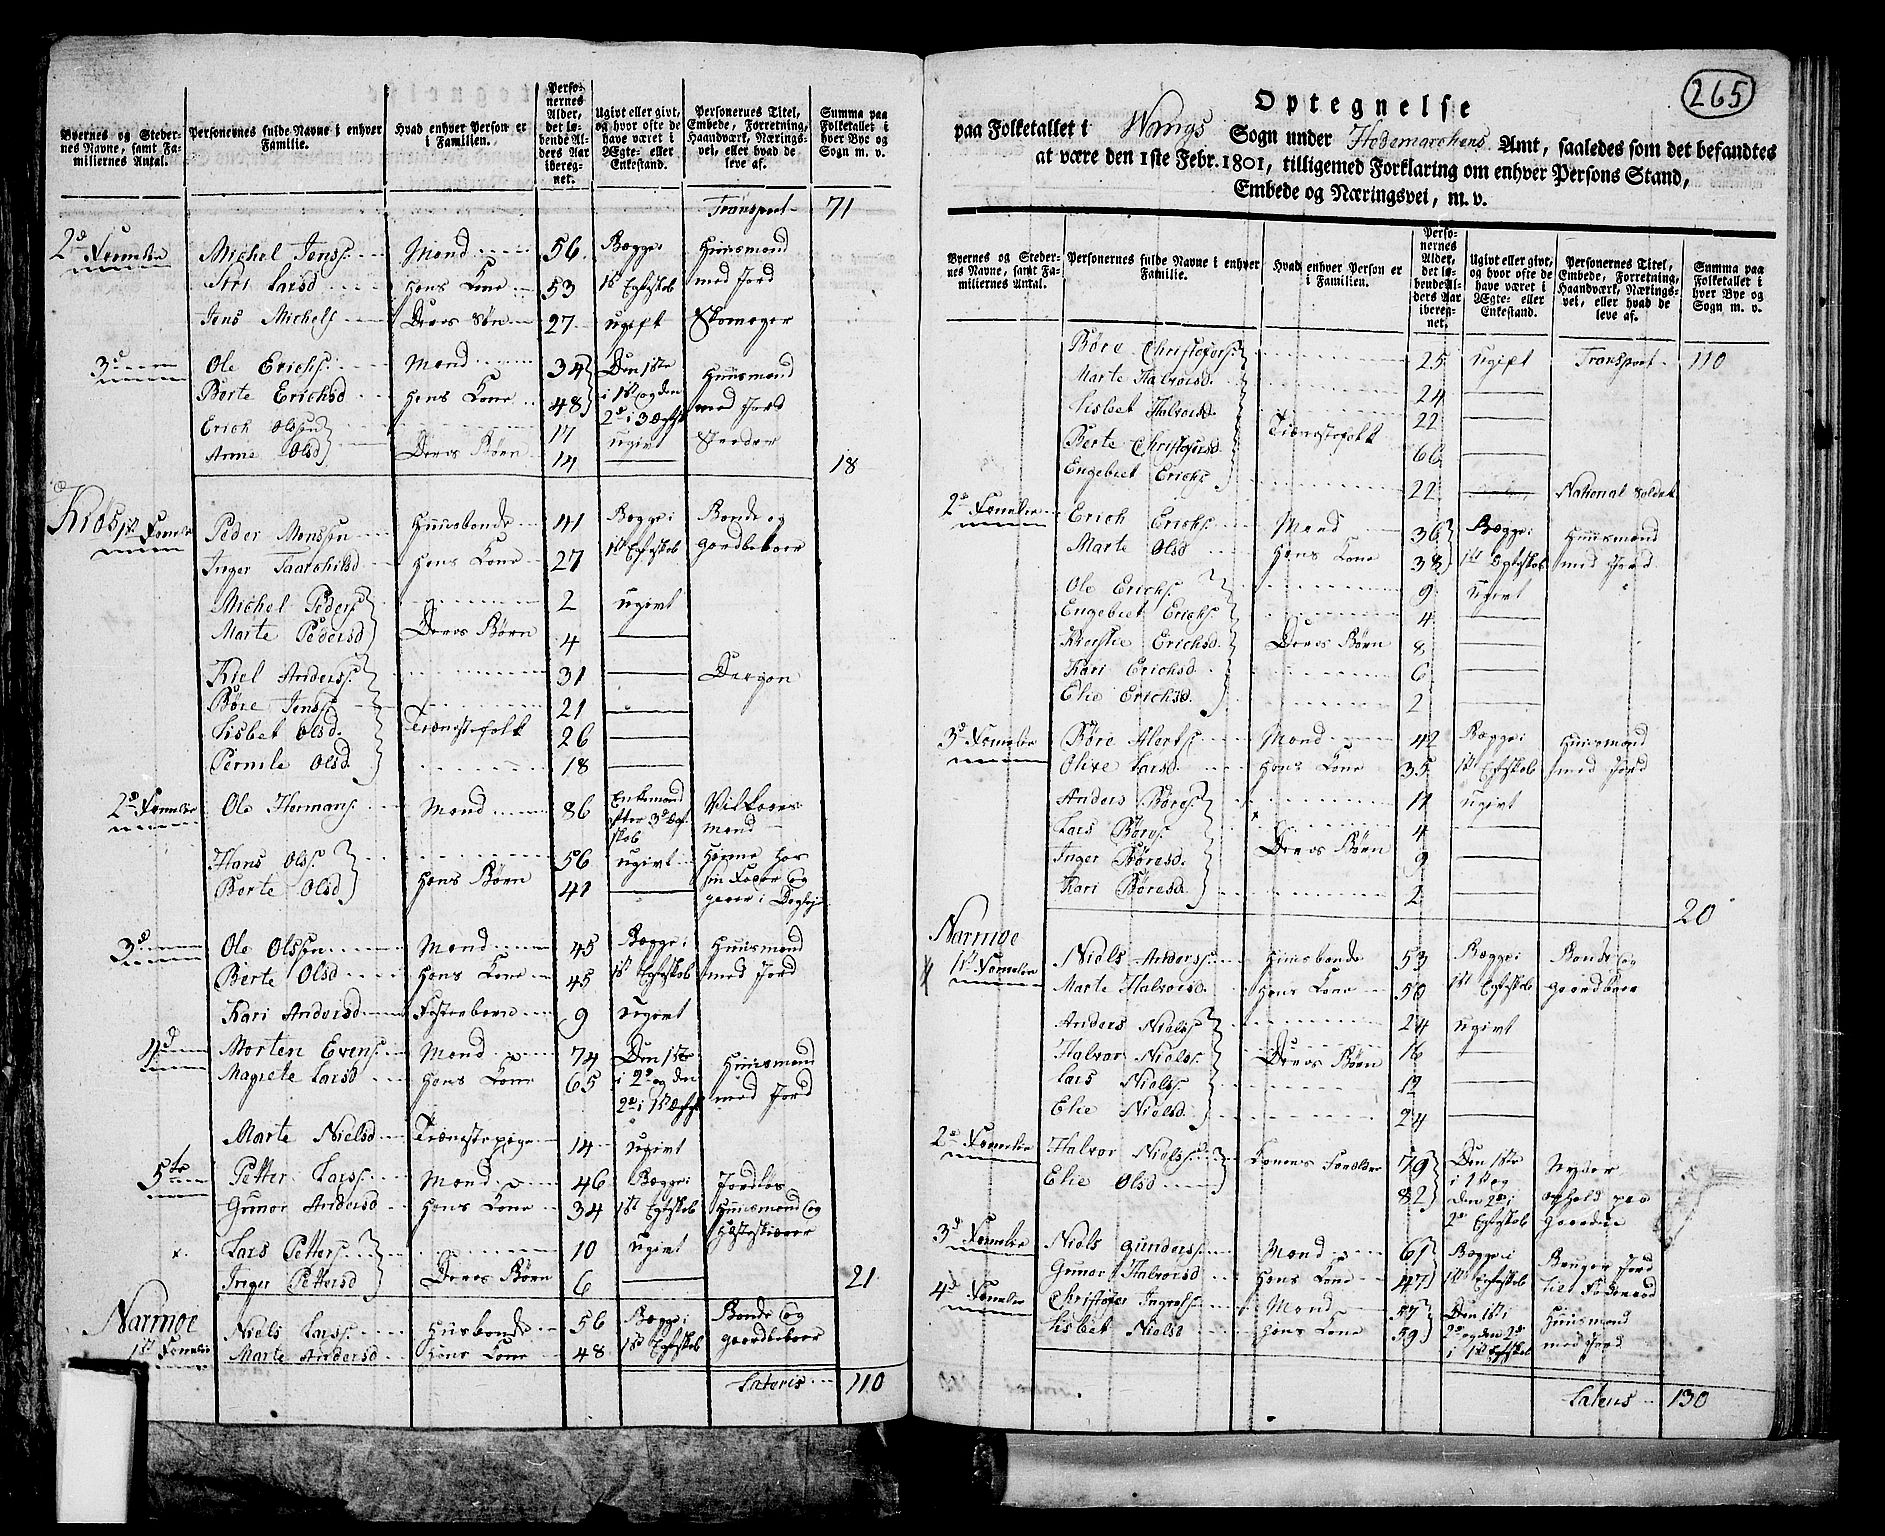 Byernes og Steder-
nes Navne, samt Fa-
miliernes Antal.
Personernes fulde Navne i enhver
Familie.
Hvad enhver Person er
i Familien.
Perso-
nernes
Alder,
det lø-
bende Al-
ders Aar
ibereg-
net.
Ugivt eller givt,
og hvor ofte de
have været i
Ægte- eller
Enkestand.
Personernes Titel,
Embede, Forretning,
Haandværk, Nærings-
vei, eller hvad de
leve af.
Summa paa
Folketallet i
hver Bye og
Sogn m. v.
Transport 71
2d Familie Michel Jenss. Mand 56 Begge i Huusmand
Larsd Hans Kone 53 1st Egteskab med Jord
Jens Michels. Deres Søn 27 ugift Skomager
3d Ole Erichs. Mand 34 Den 1ste Huusmand
Berte Erichsd Hans Kone 48 i 1st og den med Jord
Erich Olssen 17 2d i 3 Egtsk
Anne Olsd Deres Børn 14 ugivt 18
1st Familie Peder Monssen Huusbonde 41 Begge i Bonde og
Inger Taarchilsd Hans Kone 27 1st Egteskab gaardbeboer
Michel Peders. 2 ugivt
Marte Pedersd Deres Børn 4
Kiel Anderss. 31
Børe Jenss. 21
Lisbet Olsd. Tienestefolk 26
Pernile Olsd. 18
2d Familie Ole Hermans. Mand 86 Enkemand
efter 3d Egt-
skab mand
Hans Olss. 56 ugivt
Berte Olsd Hans Børn 41
3d Ole Olssen Mand 45 Begge i Huusmand
Berte Olsd Hans Kone 45 1st Egteskab med Jord
Kari Andersd Fosterbarn 9 ugivt
4d Morten Evens. Mand 74 Den 1ste Huusmand
Magrete Larsd Hans Kone 65 i 2d og den med Jord
2d i 1st Egtsk
Marte Nielsd Tienestepige 14 ugivt
5te Petter Larss. Mand 46 Begge i Jordløs
Gunor Andersd Hans Kone 34 1st Egteskab Huusmand og
Lars Petters. 10 ugivt
Inger Pettersd Deres Børn 6 21
Narmoe
1st Familie Niels Larss. Husbonde 56 Begge i Bonde og
Marte Andersd Hans Kone 48 1st Egteskab gaardbeboer
Lateris 110
265
Optegnelse
paa Folketallet i Wangs Sogn under Hedemarchens Amt, saaledes som det befandtes
at være den 1ste Febr. 1801, tilligemed Forklaring om enhver Persons Stand,
Embede og Næringsvei, m. v.
Byernes og Steder-
nes Navne, samt Fa-
miliernes Antal.
Personernes fulde Navne i enhver
Familie.
Hvad enhver Person er
i Familien.
Perso-
nernes
Alder,
det lø-
bende Al-
ders Aar
ibereg-
net.
Ugivt eller givt,
og hvor ofte de
have været i
Ægte- eller
Enkestand.
Personernes Titel,
Embede, Forretning,
Haandværk, Nærings-
vei, eller hvad de
leve af.
Summa paa
Folketallet i
hver Bye og
Sogn m. v.
Børe Christofers. 25 ugift Transport 110
Marte Halvorsd. 24
Lisbet Halvorsd. 22
Berte Christofersd. Tienestefolk 66
Engebret Erichs. 22 National Soldat
2d Familie Erich Erichs. Mand 36 Begge i Huusmand
Marte Olsd Hans Kone 38 1st Egteskab med Jord
Ole Erichs. 9 ugivt
Engebret Erichs. 4
Erichsd. Deres Børn 8
Kari Erichsd 6
Elie Erichsd. 2
3d Familie Børe Alerts. Mand 42 Begge i Huusmand
Olive Larsd. Hans Kone 35 1st Egteskab med Jord
Anders Børes. 11 ugivt
Lars Børes. 4
Inger Børesd. Deres Børn 9
Kari Børesd. 2
20
Narmoe
1st Familie Niels Anderss. Huusbonde 53 Begge i Bonde og
Marte Halvorsd. Hans Kone 50 1st Egteskab
Anders Nielss. 24 ugivt
Halvor Nielss. Deres Børn 16
Lars Nielss. 12
Elie Nielsd. 24
2d Familie Halvor Nielss. Konens Forældre 79 Den 1ste Nyder
Elie Olsd 82 i 1st og ophold paa
den 2d i gaarden
2d Egteskab
3d Familie Niels Gunderss. Mand 61 Begge i Bruger Jord
Gunor Halvorsd Hans Kone 47 1st Egteskab
4d Familie Christofer Mand 57 Den 1st i Huusmand
Lisbet Nielsd Hans Kone 59 2d og den 2d med Jord
i 1st Egteskab
Lateris 130